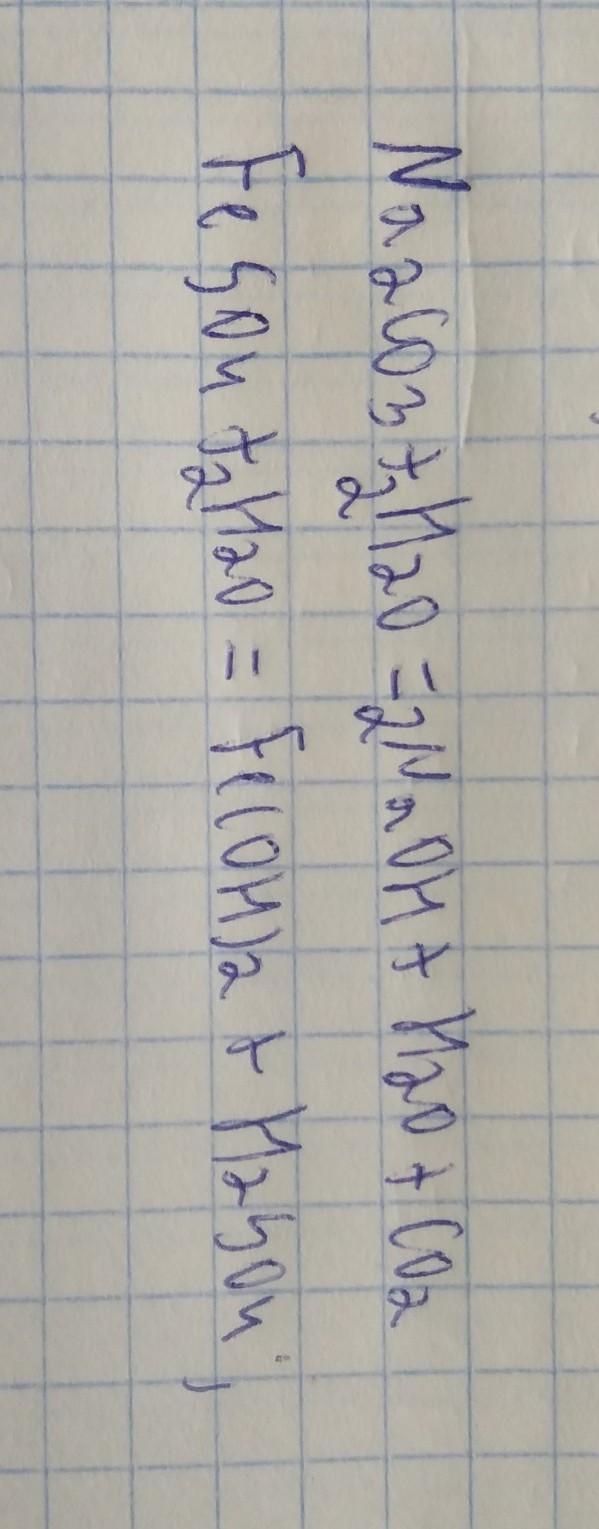 Na2CO3 + 2H2O = 2NaOH + H2O + CO2
FeSO4 + 2H2O = Fe(OH)2 + H2SO4;